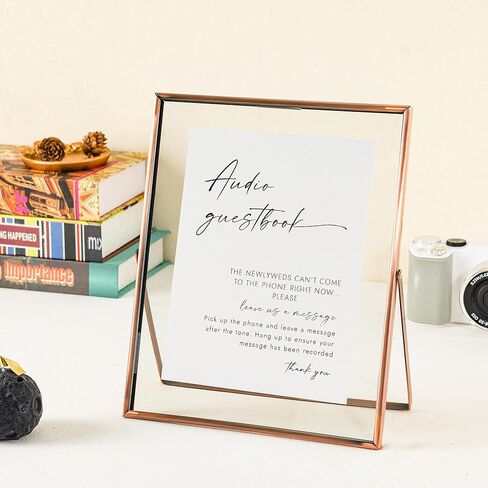 Audio
guestbook
THE NEWLYWEDS CAN'T COME
TO THE PHONE RIGHT NOW...
PLEASE
leave us a message
Pick up the phone and leave a message
after the tone. Hang up to ensure your
message has been recorded
thank you
NG HAPPENED
Importance